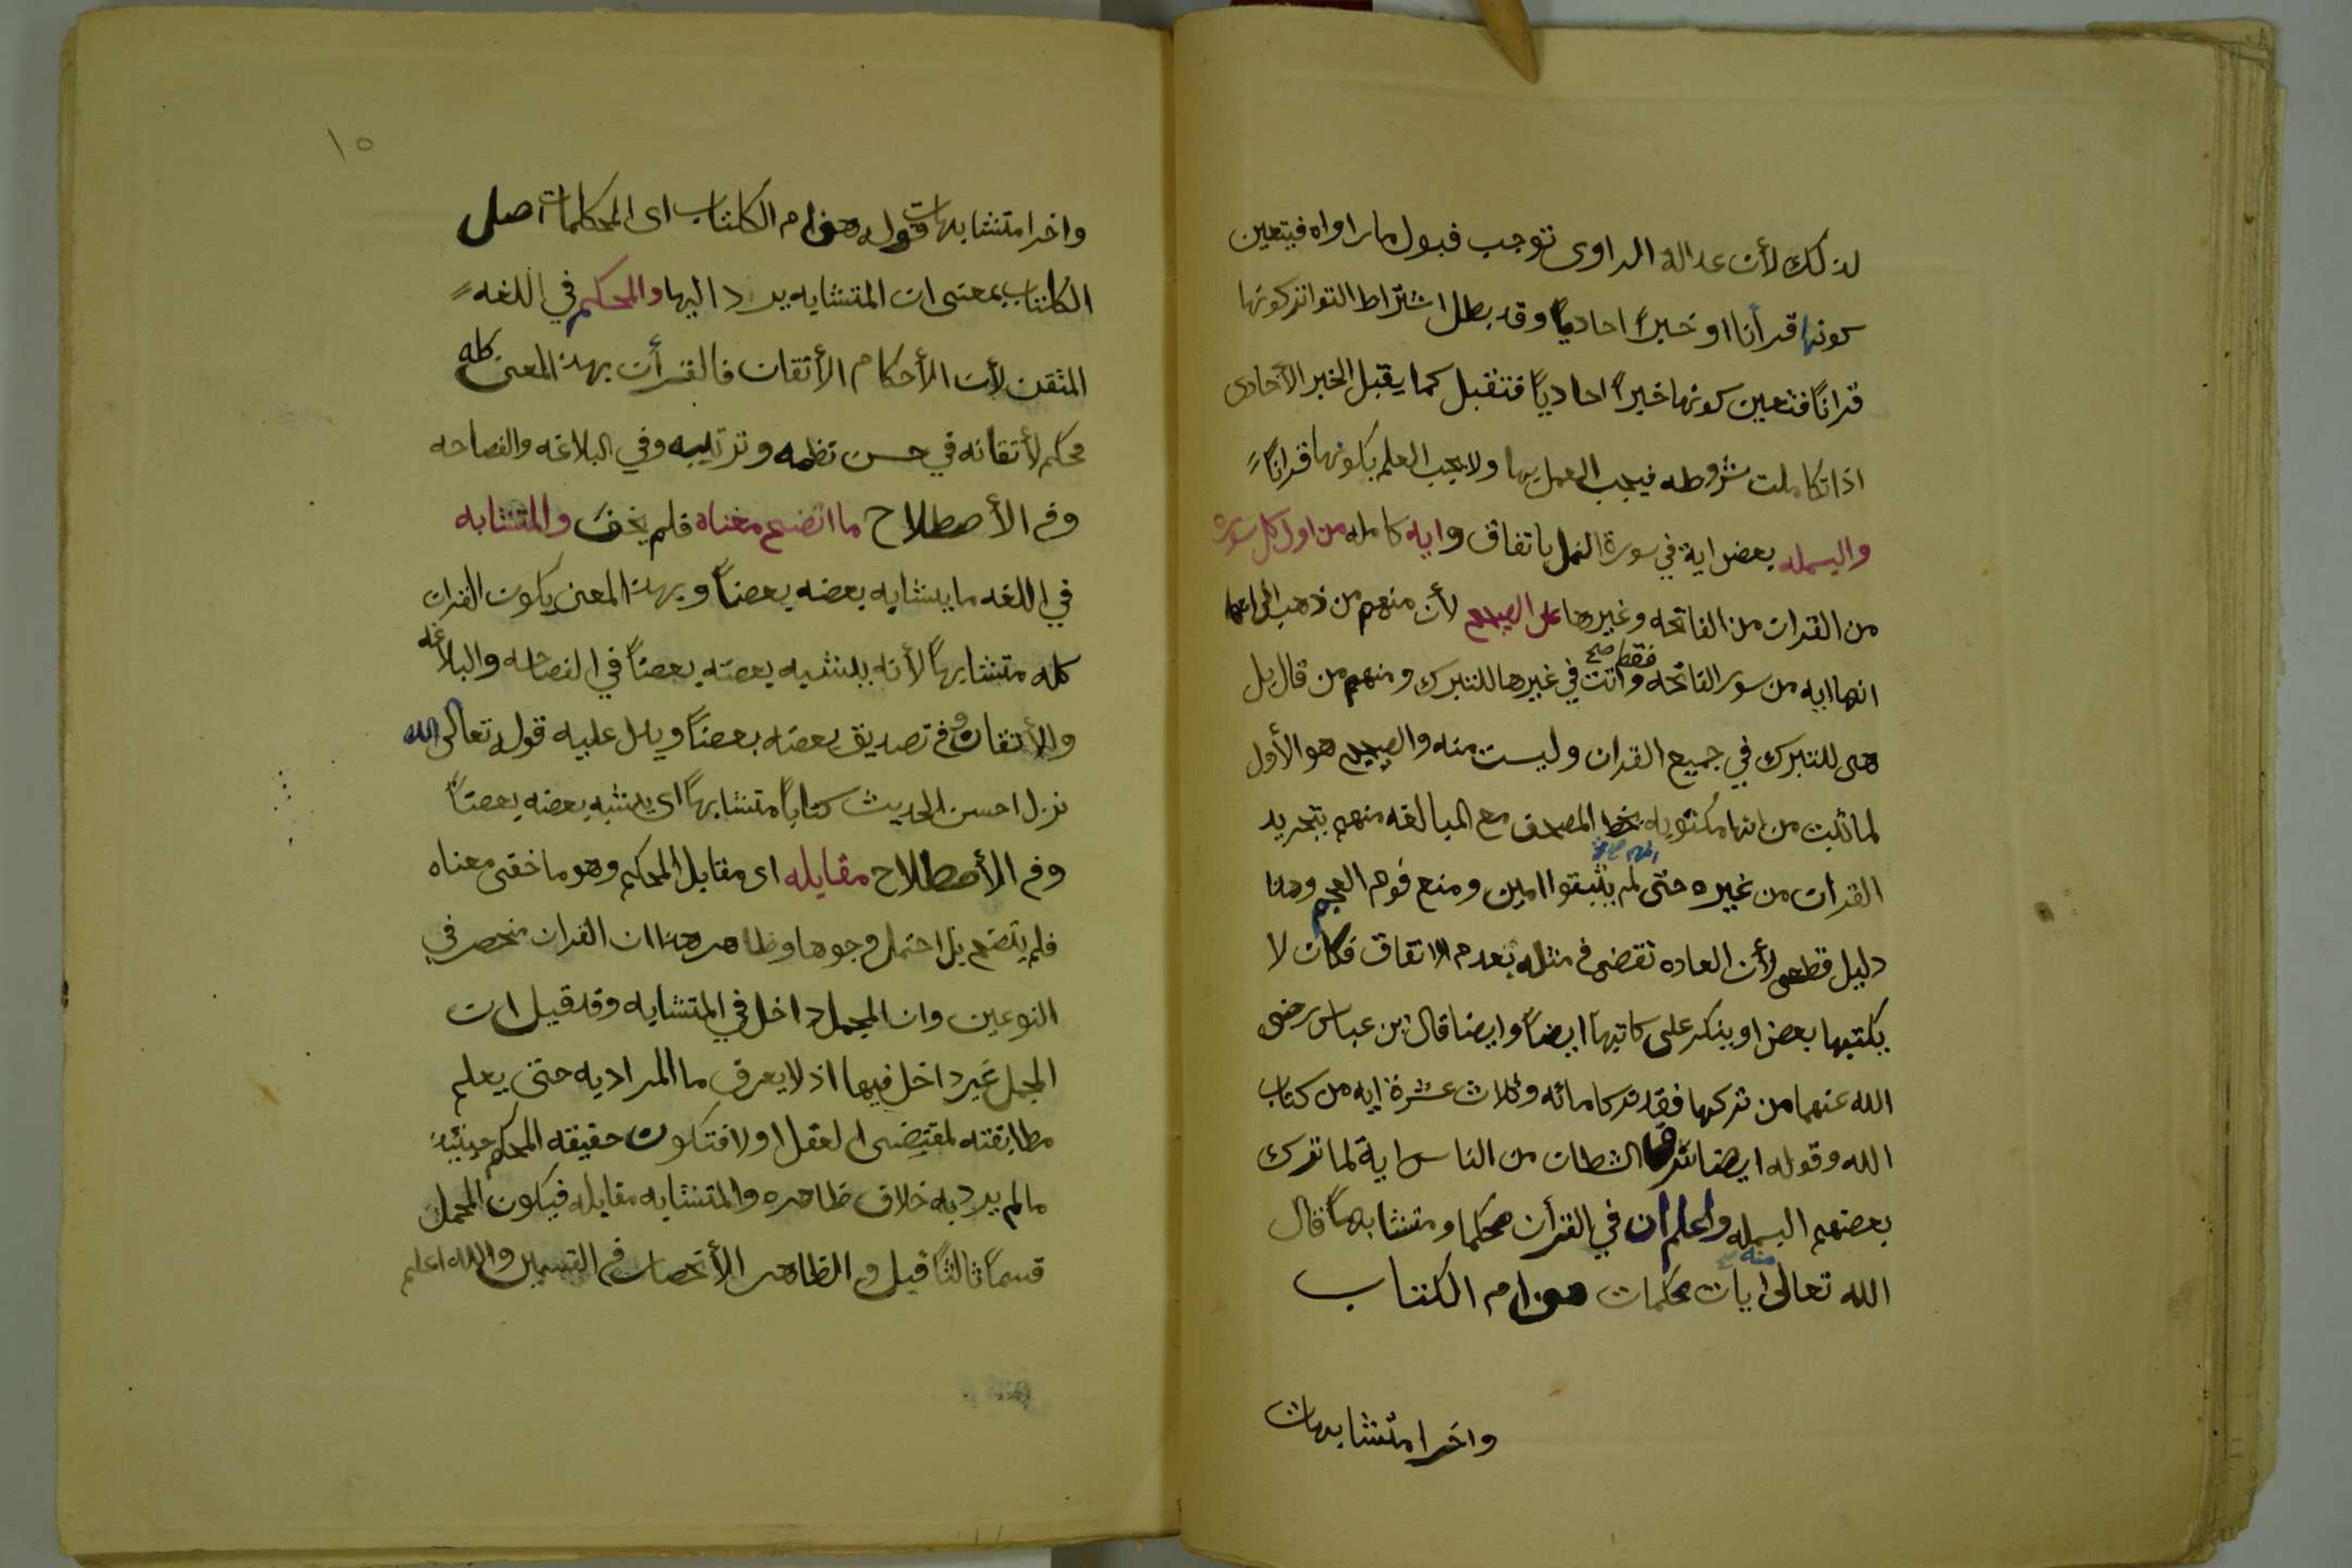 لذلك لأن عدالة الراوى توجب قبول ما راواه فيتعين
كونها قرأنا او خبرًا احاديًا وقد بطل اشتراط التواتر كونها
قرانًا فتعين كونها خبرًا احاديًا فتقبل كما يقبل الخبر الآحادى
اذا تكاملت شروطه فيجب العمل بها ولا يجب العلم بكونها قرانًا
والبسمله بعض اية في سورة النمل باتفاق وايه كامله من اول كل سورة
من القران من الفاتحه وغيرها على الصحيح لأن منهم من ذهب الى انما
انها ايه من سور الفاتحه فقط صح واتت في غيرها للتبرك ومنهم من قال بل
هى للتبرك في جميع القران وليست منه والصحيح هو الأول
لما ثبت من انها مكتوبه بخط المصحف مع المبالغه منهم بتجريد
القران من غيره حتى لم يثبتوا امين ومنع قوم العجم وهذا
دليل قطعى لأن العاده تقضى فى مثله بعدم الاتفاق فكان لا
يكتبها بعض او ينكر على كاتبها ايضًا وايضا قال بن عباس رضى
الله عنهما من تركها فقد ترك مائه وثلاث عشرة ايه من كتاب
الله وقوله ايضا سرق الشطان من الناس اية لما ترك
بعضهم البسمله واعلم ان في القرأن محكما ومتشابهًا قال
الله تعالى منه صح ايات محكمات هن ام الكتاب
واخرا متشابهات
١٥
واخرا متشابهات قوله هن ام الكتاب اى المحكمات اصل
الكتاب بمعنى ان المتشابه يرد اليها والمحكم في اللغه
المتقن لأن الأحكام الأتقان فالقرأن بهذا المعنى كله
محكم لأتقانه في حسن نظمه وترتيبه وفي البلاغه والفصاحه
وفى الأصطلاح ما اتضح معناه فلم يخف والمتشابه
في اللغه ما يشابه بعضه بعضًا وبهذا المعنى يكون القران
كله متشابهًا لأنه يشبه بعضه بعضًا في الفصاحه والبلاغه
والأتقان وفى تصديق بعضه بعضًا ويدل عليه قوله تعالى الله
نزل احسن الحديث كتابًا متشابهًا اى يشبه بعضه بعضًا
وفى الأصطلاح مقابله اى مقابل المحكم وهو ما خفى معناه
فلم يتضح بل احتمل وجوها وظاهر هذا ان القران منحصر في
النوعين وان المجمل داخل في المتشابه وقد قيل ان
المجمل غير داخل فيهما اذ لا يعرف ما المراد به حتى يعلم
مطابقته لمقتضى العقل او لا فتكون حقيقه المحكم حينئذ
مالم يرد به خلاف ظاهره والمتشابه مقابله فيكون المجمل
قسمًا ثالثًا قيل والظاهر الأنحصار فى القسمين والله اعلم